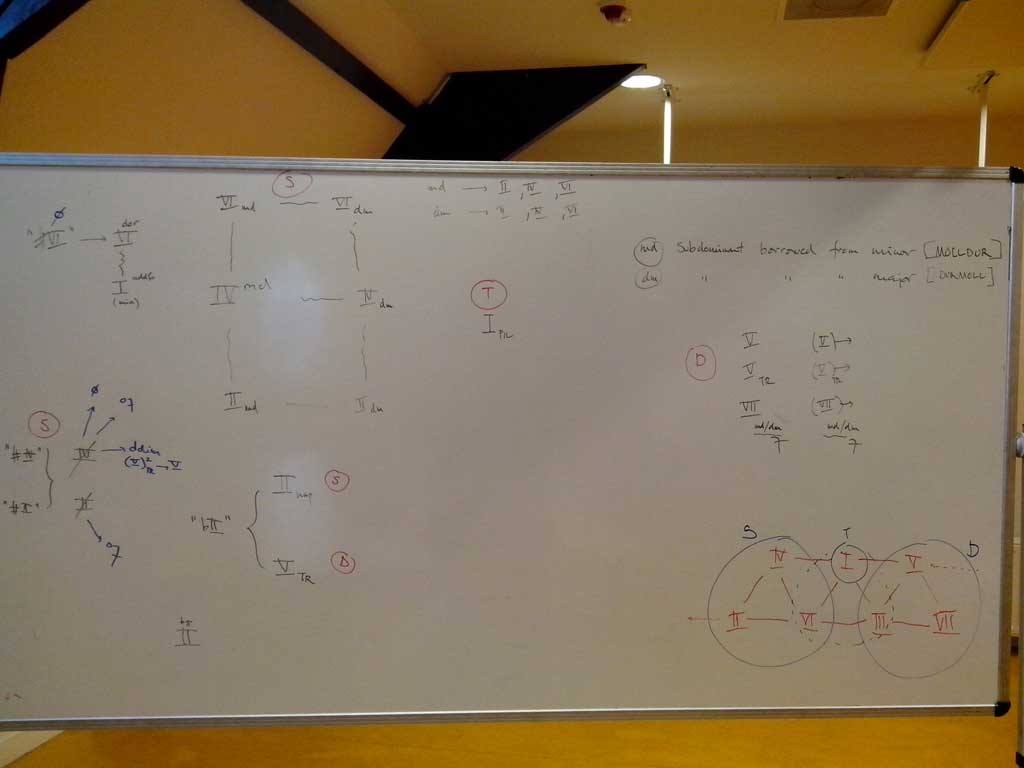 S
VI md — VI dm
IV md ~ IV dm
II md — II dm
md → II, IV, VI
dm → II, IV, VI
ø
"VI" → VI
I
(min)
T
I
md Subdominant borrowed from minor [MOLLDUR]
dm " " " major [DURMOLL]
D
V (V)→
V TR (V)→ TR
VII (VII)→
md/dm md/dm
7 7
S
ø
o7
"#IV" IV → ddim
(V) 2 TR → V
"#II" II
o7
"bII"
II nap S
V TR D
bII
II
S T D
IV I V
II VI III VII